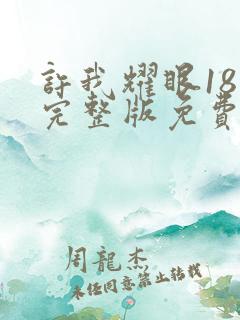 許我耀眼18
完整版免費
周龍杰
未任同意禁止转载